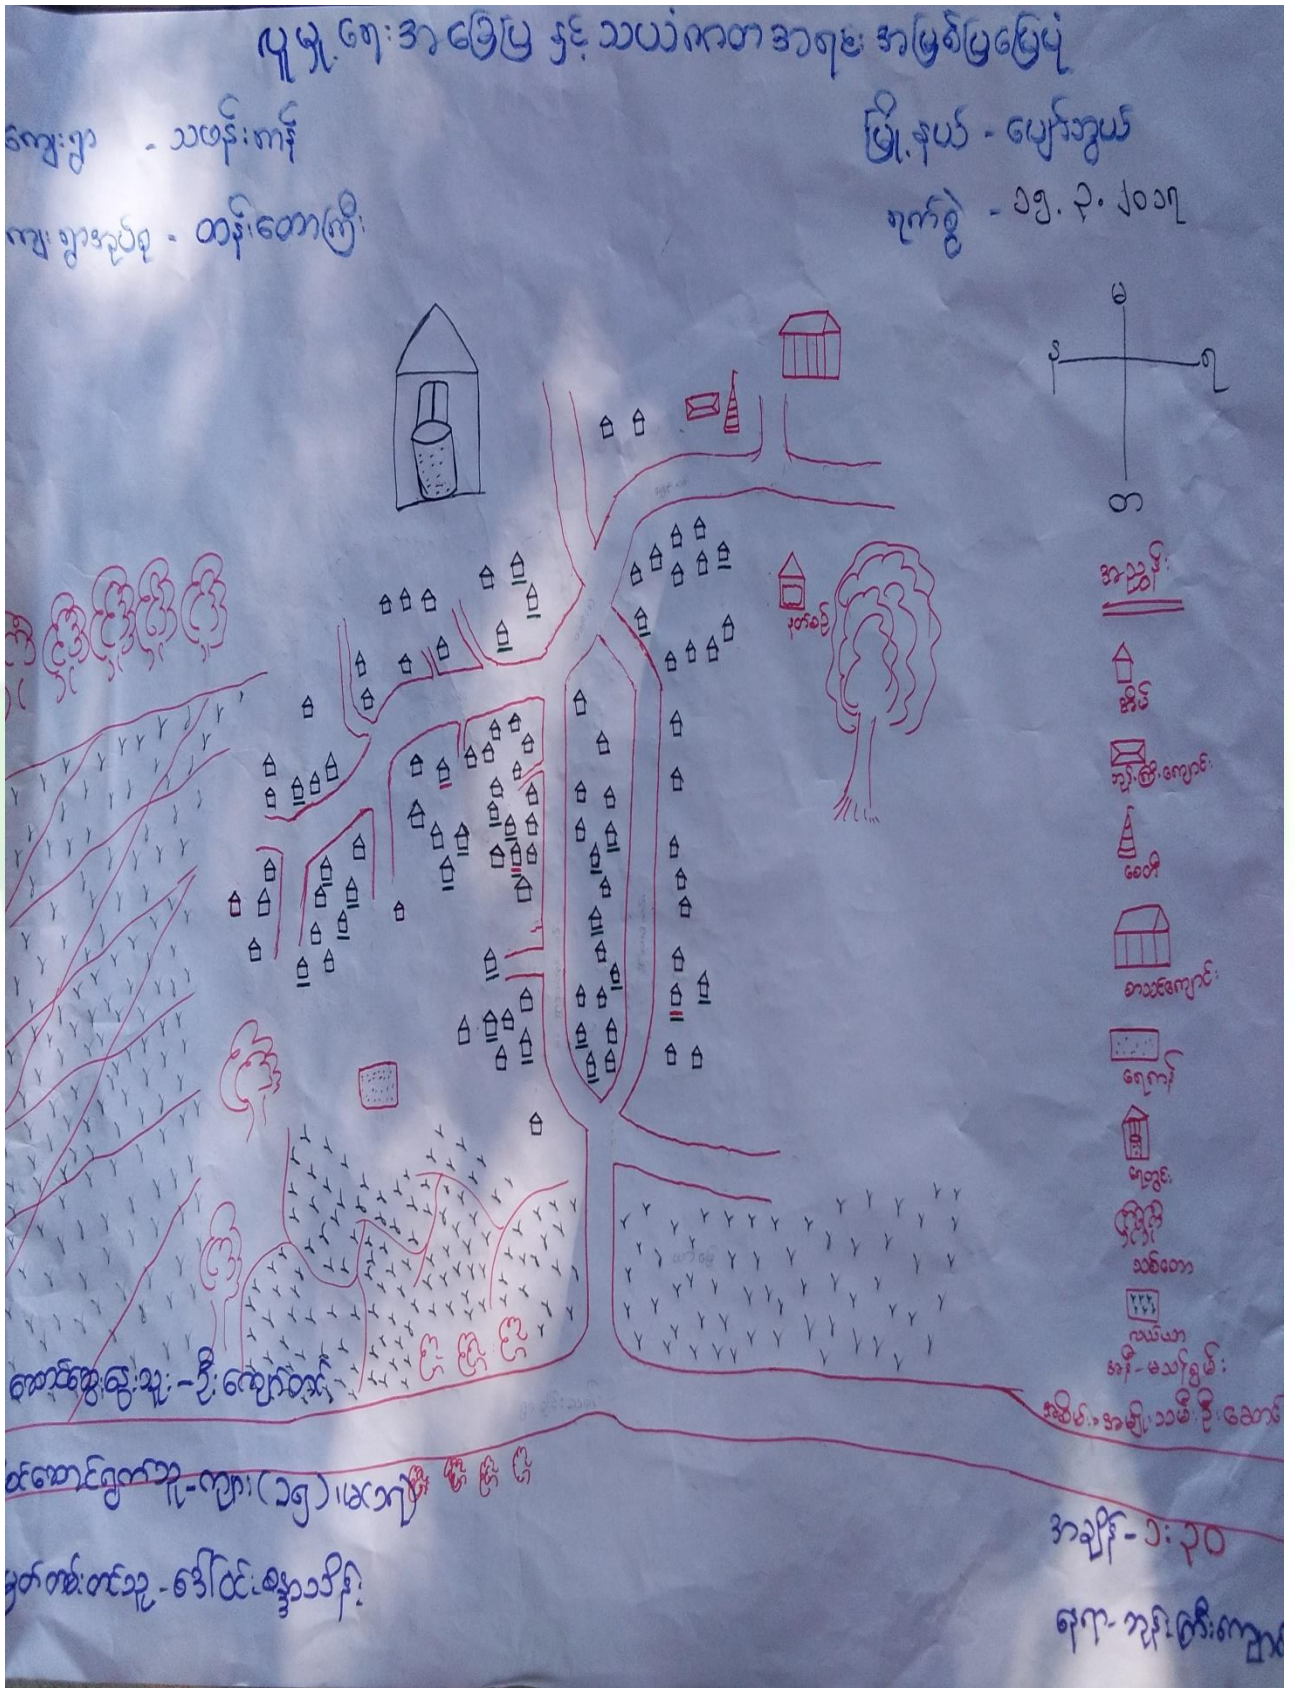 လူမှုရေးအခြေပြ နှင့် သယံဇာတအရင်းအမြစ်ပြမြေပုံ
ကျေးရွာ - သဖန်းကန်
မြို့နယ် - ပျော်ဘွယ်
ကျေးရွာအုပ်စု - ထန်းတောကြီး
ရက်စွဲ - ၁၅.၃.၂၀၁၇
မ
န
ရ
တ
အညွှန်း
မှတ်စဉ်
အိမ်
ဘုန်းကြီးကျောင်း
စေတီ
စာသင်ကျောင်း
ရေကန်
ရေတွင်း
သစ်တော
လယ်ယာ
အနီ - မသန်စွမ်း
အစိမ်း - အမျိုးသမီးဦးဆောင်
ဆောင်ဆွေးနွေးသူ - ဦးကျော်တင့်
ဆောင်ရွက်သူ - ကျား (၁၅) ၊ မ (၁၇)
မှတ်တမ်းတင်သူ - ဒေါ်ဝင်းစန္ဒာသိန်း
အချိန် - ၁:၃၀
နေရာ - ဘုန်းကြီးကျောင်း